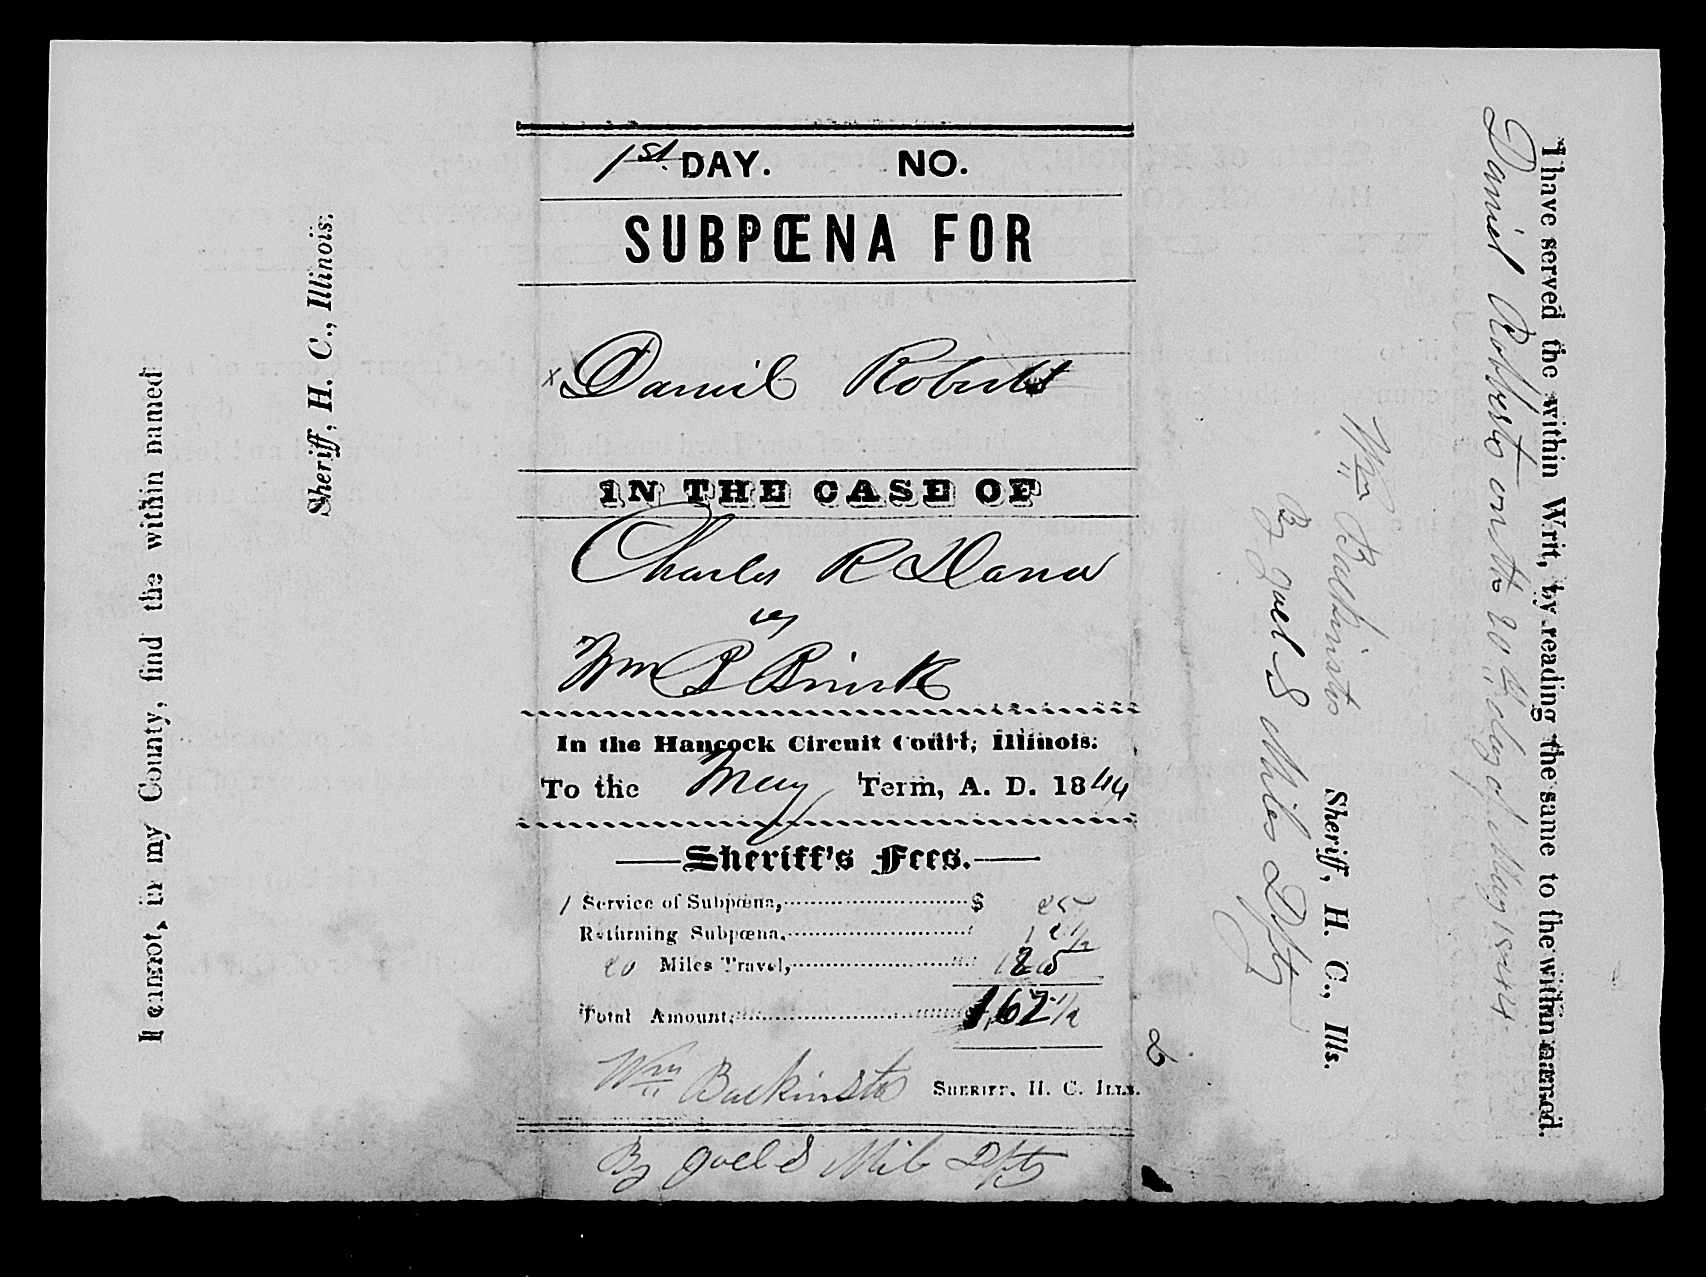 I cannot, in my County, find the within named
Sheriff, H. C., Illinois.
1st DAY. NO.
SUBPŒNA FOR
x Daniel Roberts
IN THE CASE OF
Charles R Dana
vs
Wm B Brink
In the Hancock Circuit Court, Illinois:
To the May Term, A. D. 1844
Sheriff's Fees.
1 Service of Subpœna, $ 25
Returning Subpœna, 12 1/2
20 Miles Travel, 1 25
Total Amount, 1,62 1/2
Wm Backinstos SHERIFF, H. C. ILLS.
By Joel S Miles Dpty
I have served the within Writ, by reading the same to the within named.
Daniel Roberts on the 20th day of May 1844
Wm Backinstos Sheriff, H. C., Ills.
By Joel S Miles Dpty